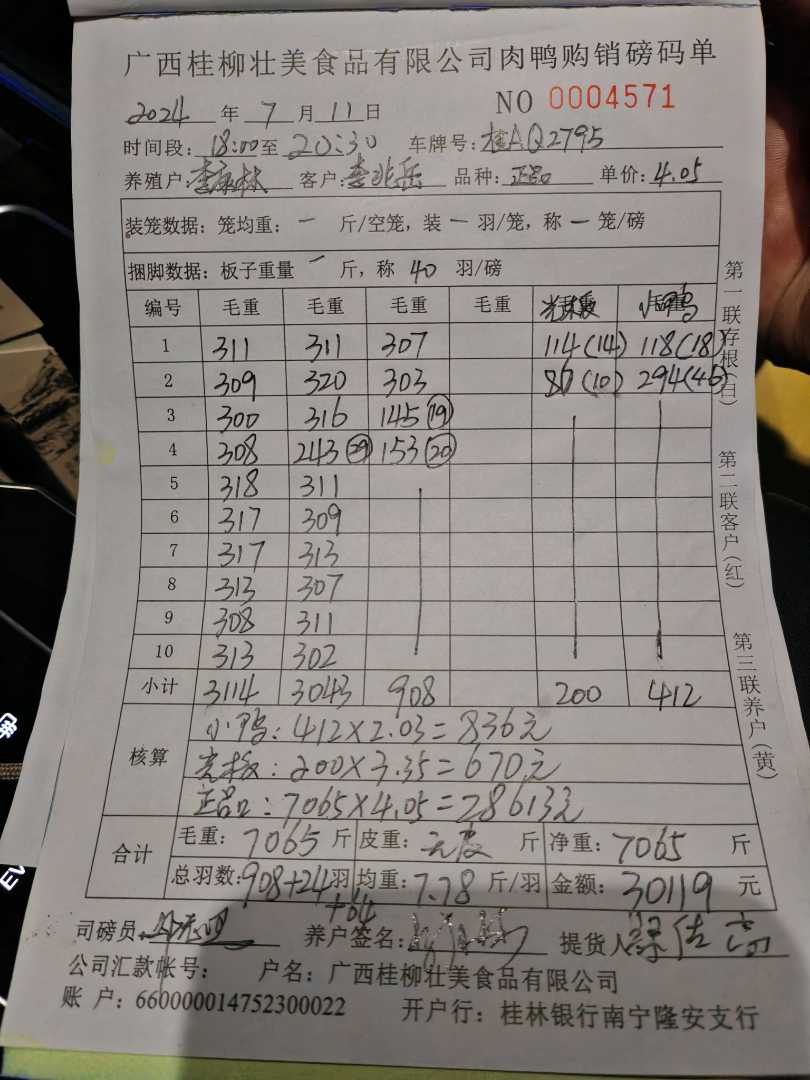 广西桂柳壮美食品有限公司肉鸭购销磅码单
2024 年 7 月 11 日 NO 0004571
时间段: 18:00 至 20:30 车牌号: 桂AQ2795
养殖户: 李 林 客户: 李兆岳 品种: 正品 单价: 4.05
装笼数据: 笼均重: 一 斤/空笼, 装 一 羽/笼, 称 一 笼/磅
捆脚数据: 板子重量 一 斤, 称 40 羽/磅
编号 毛重 毛重 毛重 毛重 小鸭
1 311 311 307 114(14) 118(18)
2 309 320 303 86(10) 294(46)
3 300 316 145(19)
4 308 243(29) 153(20)
5 318 311
6 317 309
7 317 313
8 313 307
9 308 311
10 313 302
小计 3114 3043 908 200 412
核算
小鸭: 412×2.03=836元
光板: 200×3.35=670元
正品: 7065×4.05=28613元
合计
毛重: 7065 斤 皮重: 无皮 斤 净重: 7065 斤
总羽数: 908+24 羽 均重: 7.78 斤/羽 金额: 30119 元
+64
司磅员: 养户签名: 提货人
公司汇款帐号: 户名: 广西桂柳壮美食品有限公司
账 户: 660000014752300022 开户行: 桂林银行南宁隆安支行
第一联存根(白)
第二联客户(红)
第三联养户(黄)